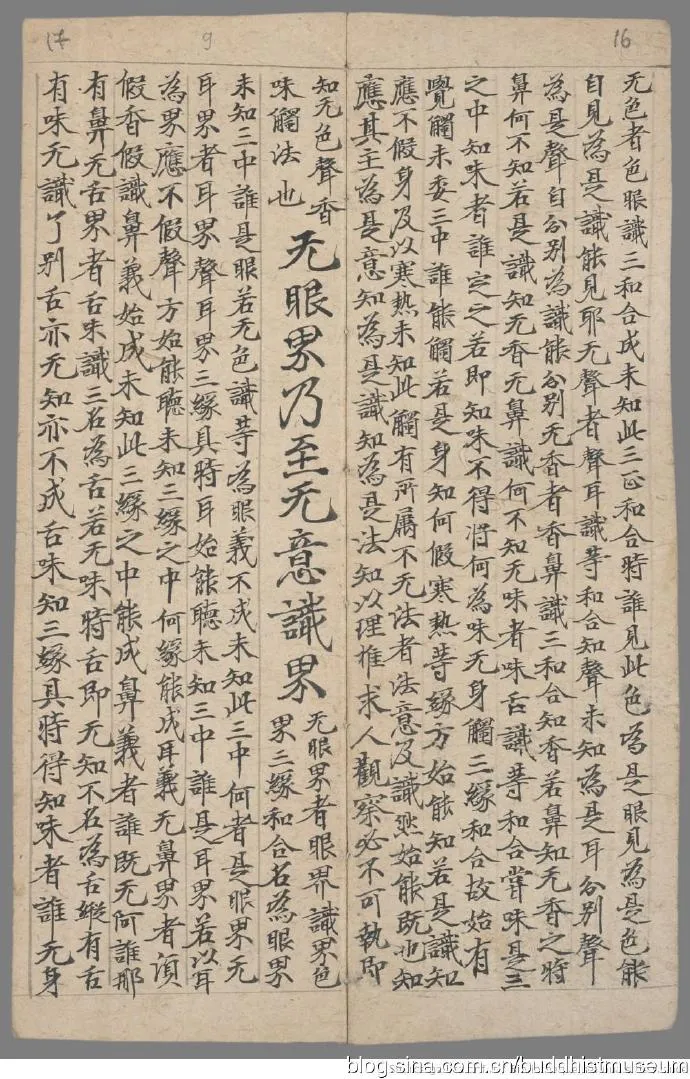 16
无色者色眼識三和合成未知此三正和合時誰見此色為是眼見為是色能
自見為是識能見耶无聲者聲耳識等和合知聲未知為是耳分別聲
為是聲自分別為識能分別无香者香鼻識三和合知香若鼻知无香之時
鼻何不知若是識知无香无鼻識何不知无味者味舌識等和合甞味是三
之中知味者誰定之若即知味不得將何為味无身觸三緣和合故始有
覺觸未委三中誰能觸若是身知何假寒熱等緣方始能知若是識知
應不假身及以寒熱未知此觸有所属不无法者法意及識然始能既也知
應其主為是意知為是識知為是法知以理推求人觀察必不可執即
17
9
知无色聲香
味觸法也
无眼界乃至无意識界
无眼界者眼界識界色
界三緣和合名為眼界
未知三中誰是眼若无色識等為眼義不成未知此三中何者是眼界无
耳界者耳界聲耳界三緣具時耳始能聽未知三中誰是耳界若以耳
為界應不假聲方始能聽未知三緣之中何緣能成耳義无鼻界者湏
假香假識鼻義始成未知此三緣之中能成鼻義者誰既无阿誰那
有鼻无舌界者舌味識三名為舌若无味時舌即无知不名為舌縱有舌
有味无識了別舌亦无知亦不成舌味知三緣具時得知味者誰无身
blog.sina.com.cn/buddhistmuseum